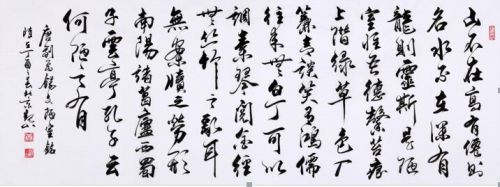 山不在高有仙則
名水不在深有
龍則靈斯是陋
室惟吾德馨苔痕
上階綠草色入
簾青談笑有鴻儒
往來無白丁可以
調素琴閱金經
無絲竹之亂耳
無案牘之勞形
南陽諸葛廬西蜀
子雲亭孔子云
何陋之有
唐劉禹錫文陋室銘
丁酉